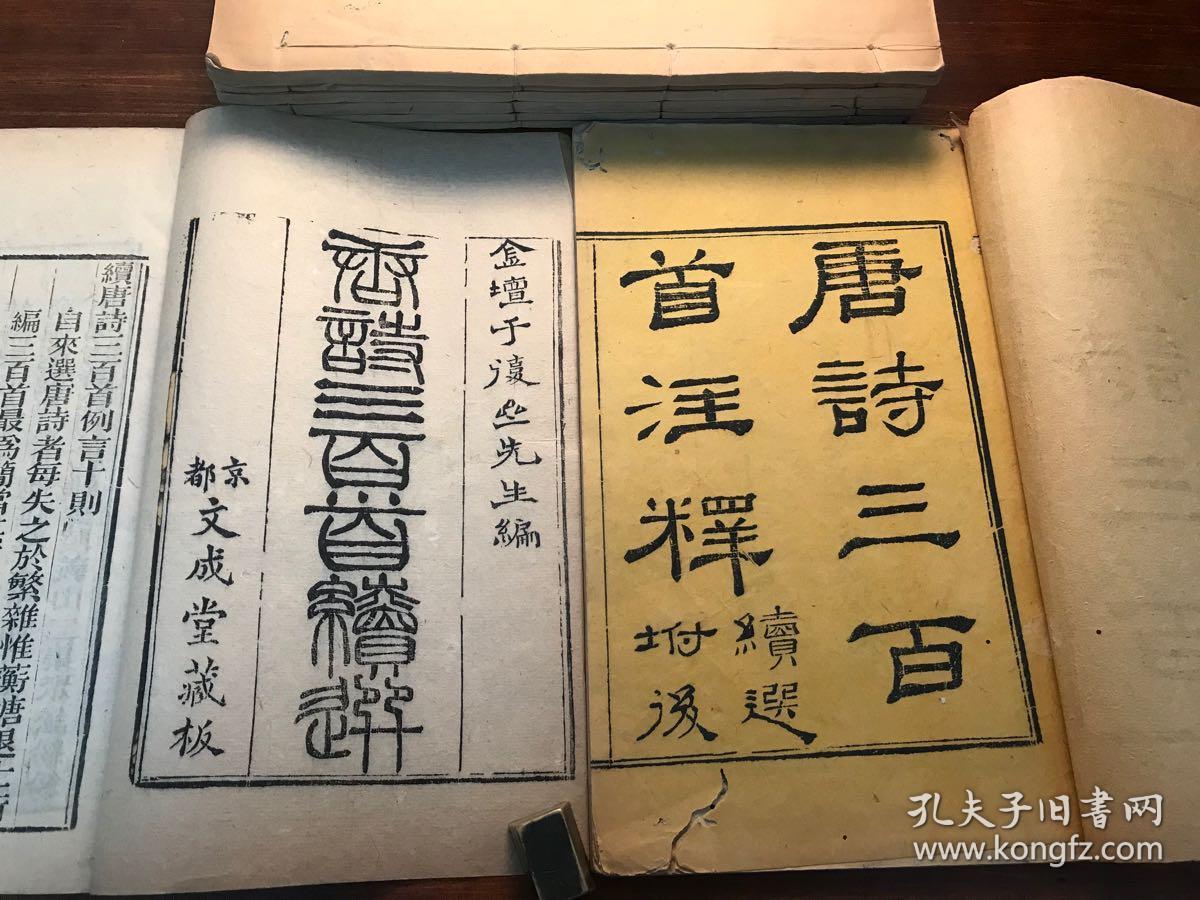 唐詩三百
首注釋
續選
坿後
金壇于復止先生編
唐詩三百首續選
京都
文成堂藏板
續唐詩三百首例言十則
自來選唐詩者每失之於繁雜惟蘅塘退士所
編三百首最爲簡當
孔夫子旧书网
www.kongfz.com